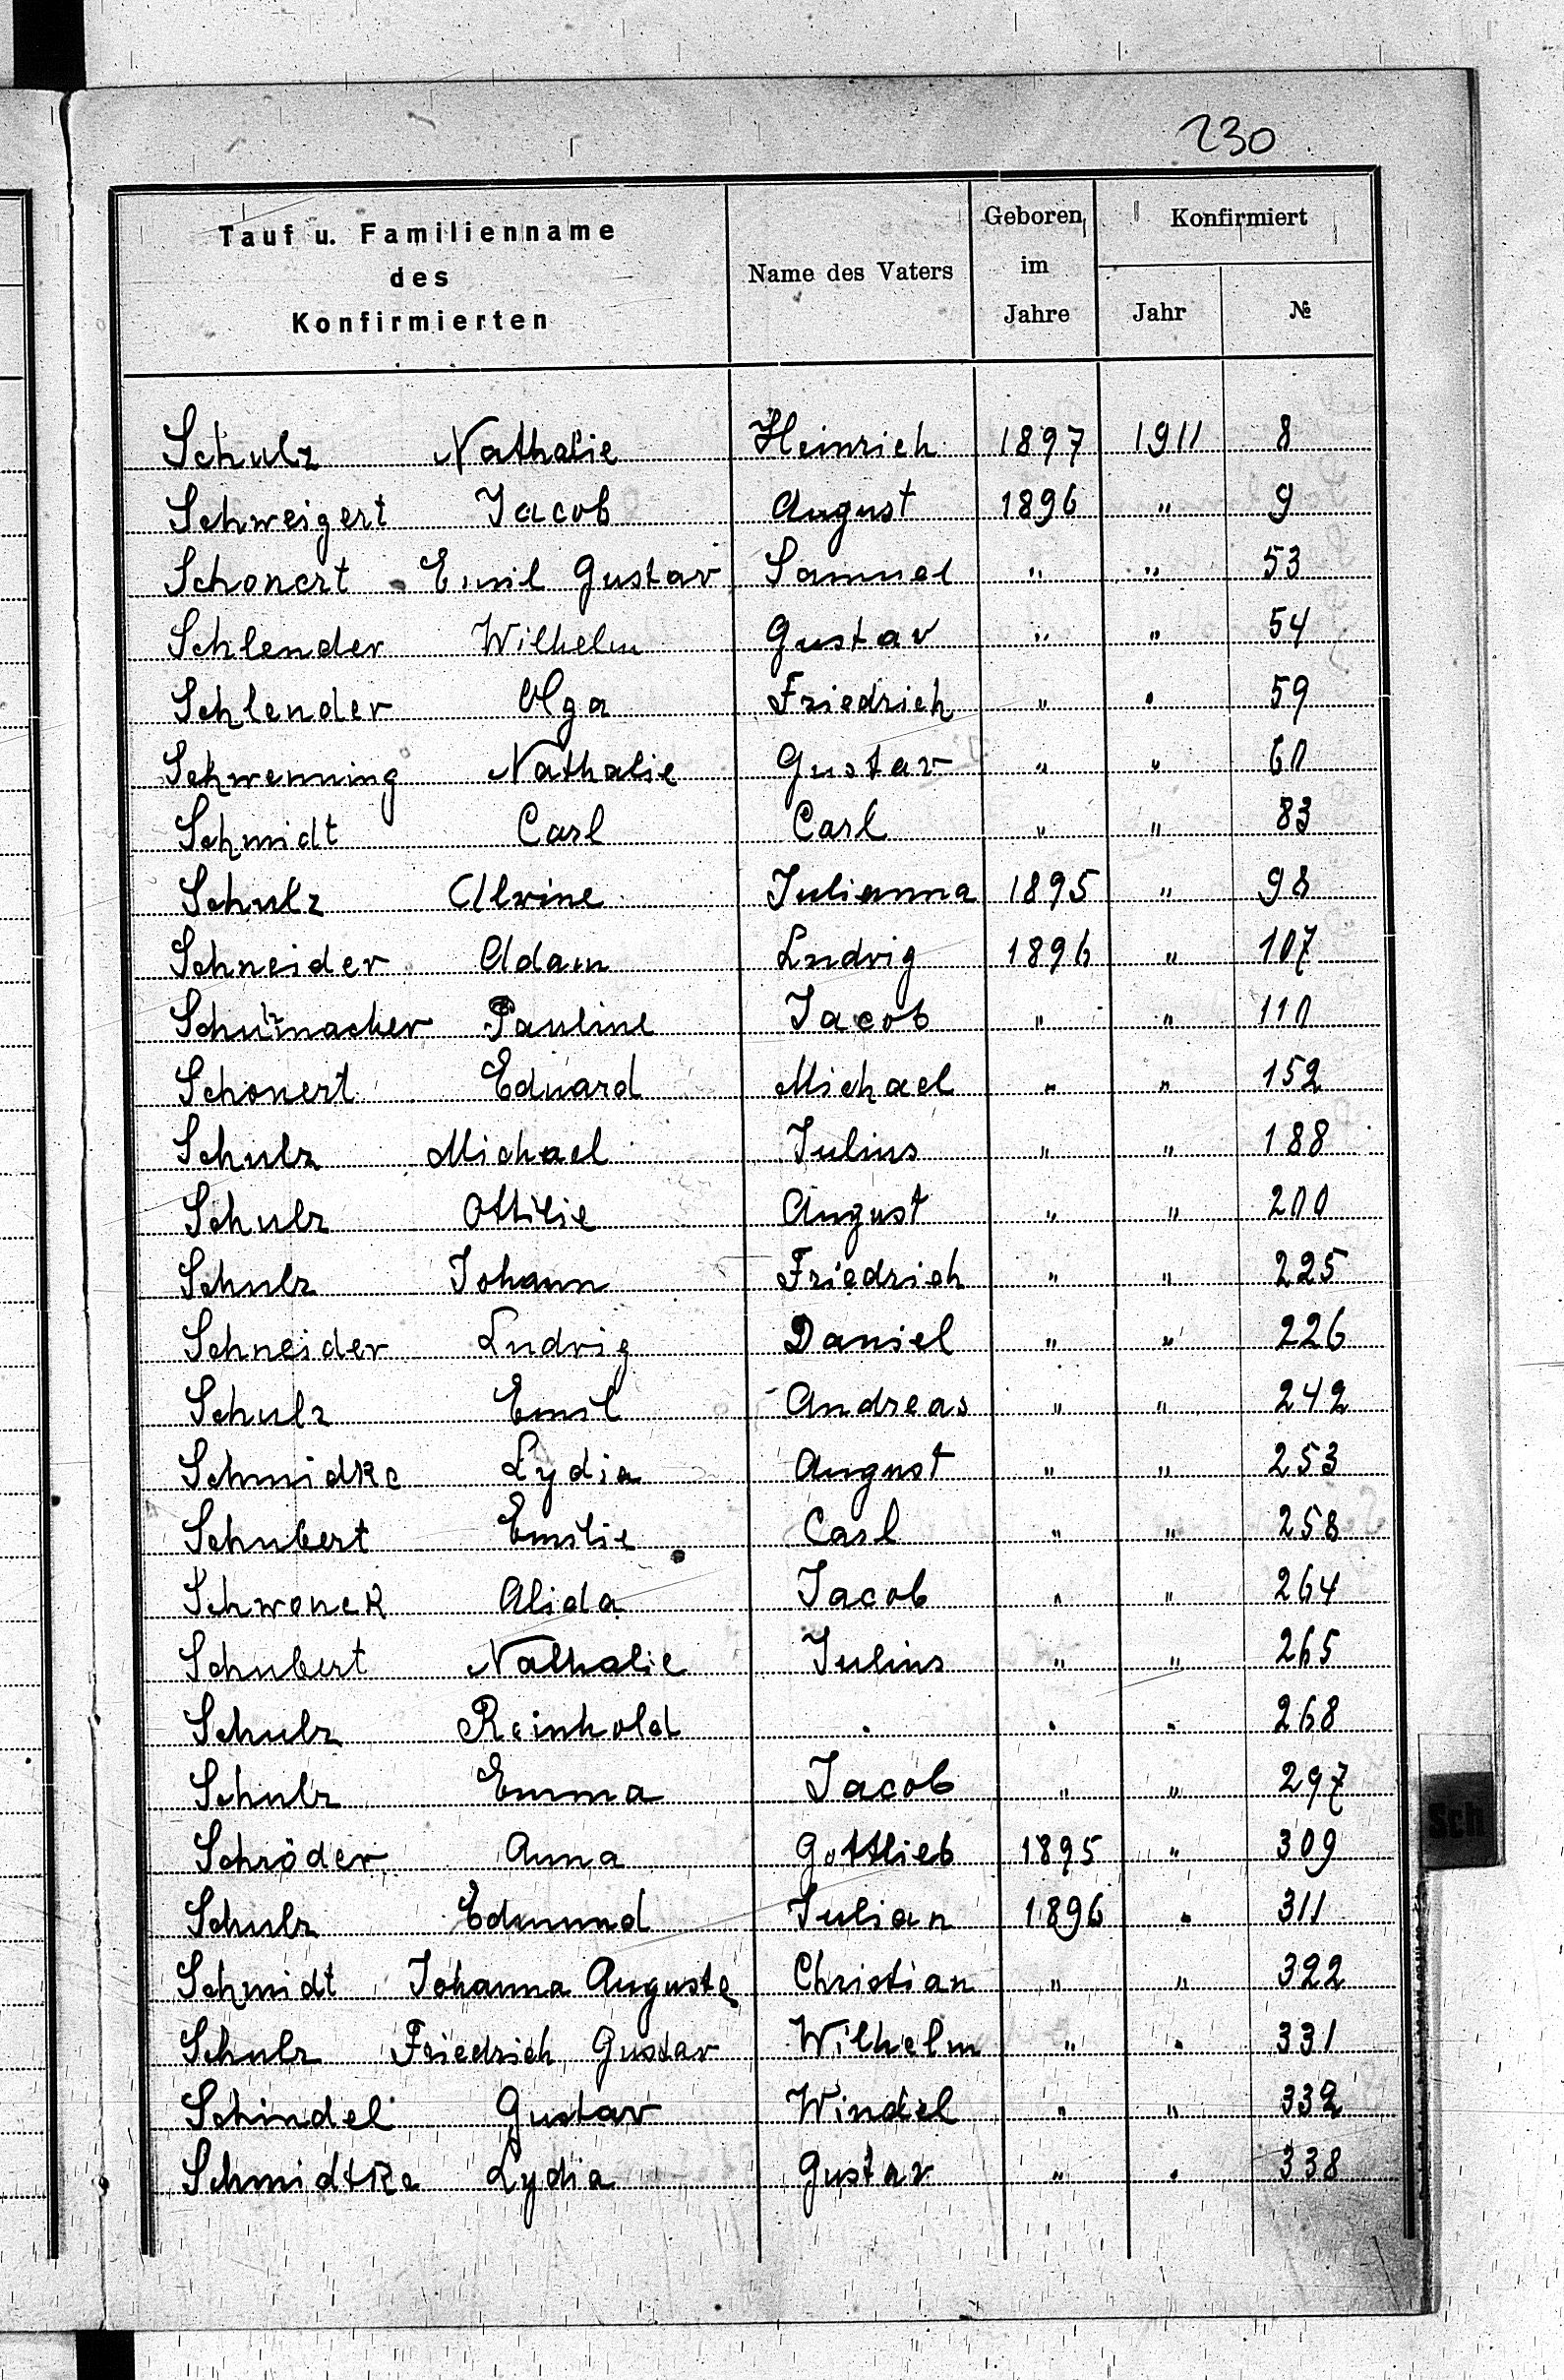 230
Tauf u. Familienname des Konfirmierten | Name des Vaters | Geboren im Jahre | Konfirmiert Jahr | №
Schulz Nathalie Heinrich 1897 1911 8
Schweigert Jacob August 1896 " 9
Schonert Emil Gustav Samuel " " 53
Schlender Wilhelm Gustav " " 54
Schlender Olga Friedrich " " 59
Schwenning Nathalie Gustav " " 60
Schmidt Carl Carl " " 83
Schulz Alvine Julianna 1895 " 98
Schneider Adam Ludvig 1896 " 107
Schumacher Pauline Jacob " " 110
Schonert Eduard Michael " " 152
Schulz Michael Julius " " 188
Schulz Ottilie August " " 200
Schulz Johann Friedrich " " 225
Schneider Ludvig Daniel " " 226
Schulz Emil Andreas " " 242
Schmidke Lydia August " " 253
Schubert Emilie Carl " " 258
Schwonek Alida Jacob " " 264
Schubert Nathalie Julius " " 265
Schulz Reinhold " " " 268
Schulz Emma Jacob " " 297
Schröder Anna Gottlieb 1895 " 309
Schulz Edmund Julian 1896 " 311
Schmidt Johanna Auguste Christian " " 322
Schulz Friedrich Gustav Wilhelm " " 331
Schindel Gustav Windel " " 332
Schmidtke Lydia Gustav " " 338
Sch